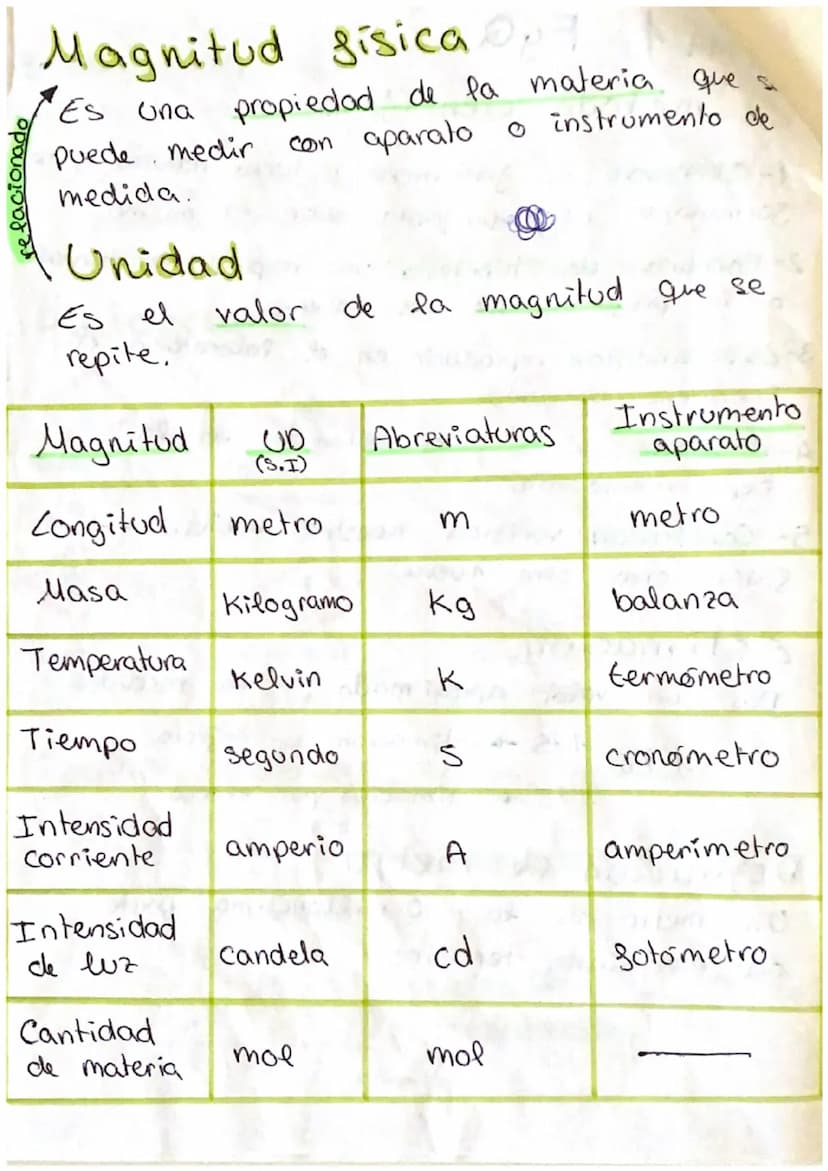 Magnitud física
Es una propiedad de la materia que s
puede medir con aparato o instrumento de
medida.
relacionado
Unidad
Es el valor de la magnitud que se
repite.
Magnitud UD (S.I) Abreviaturas Instrumento aparato
Longitud metro m metro
Masa Kilogramo Kg balanza
Temperatura Kelvin K termómetro
Tiempo segundo s cronómetro
Intensidad corriente amperio A amperímetro
Intensidad de luz candela cd fotómetro
Cantidad de materia mol mol